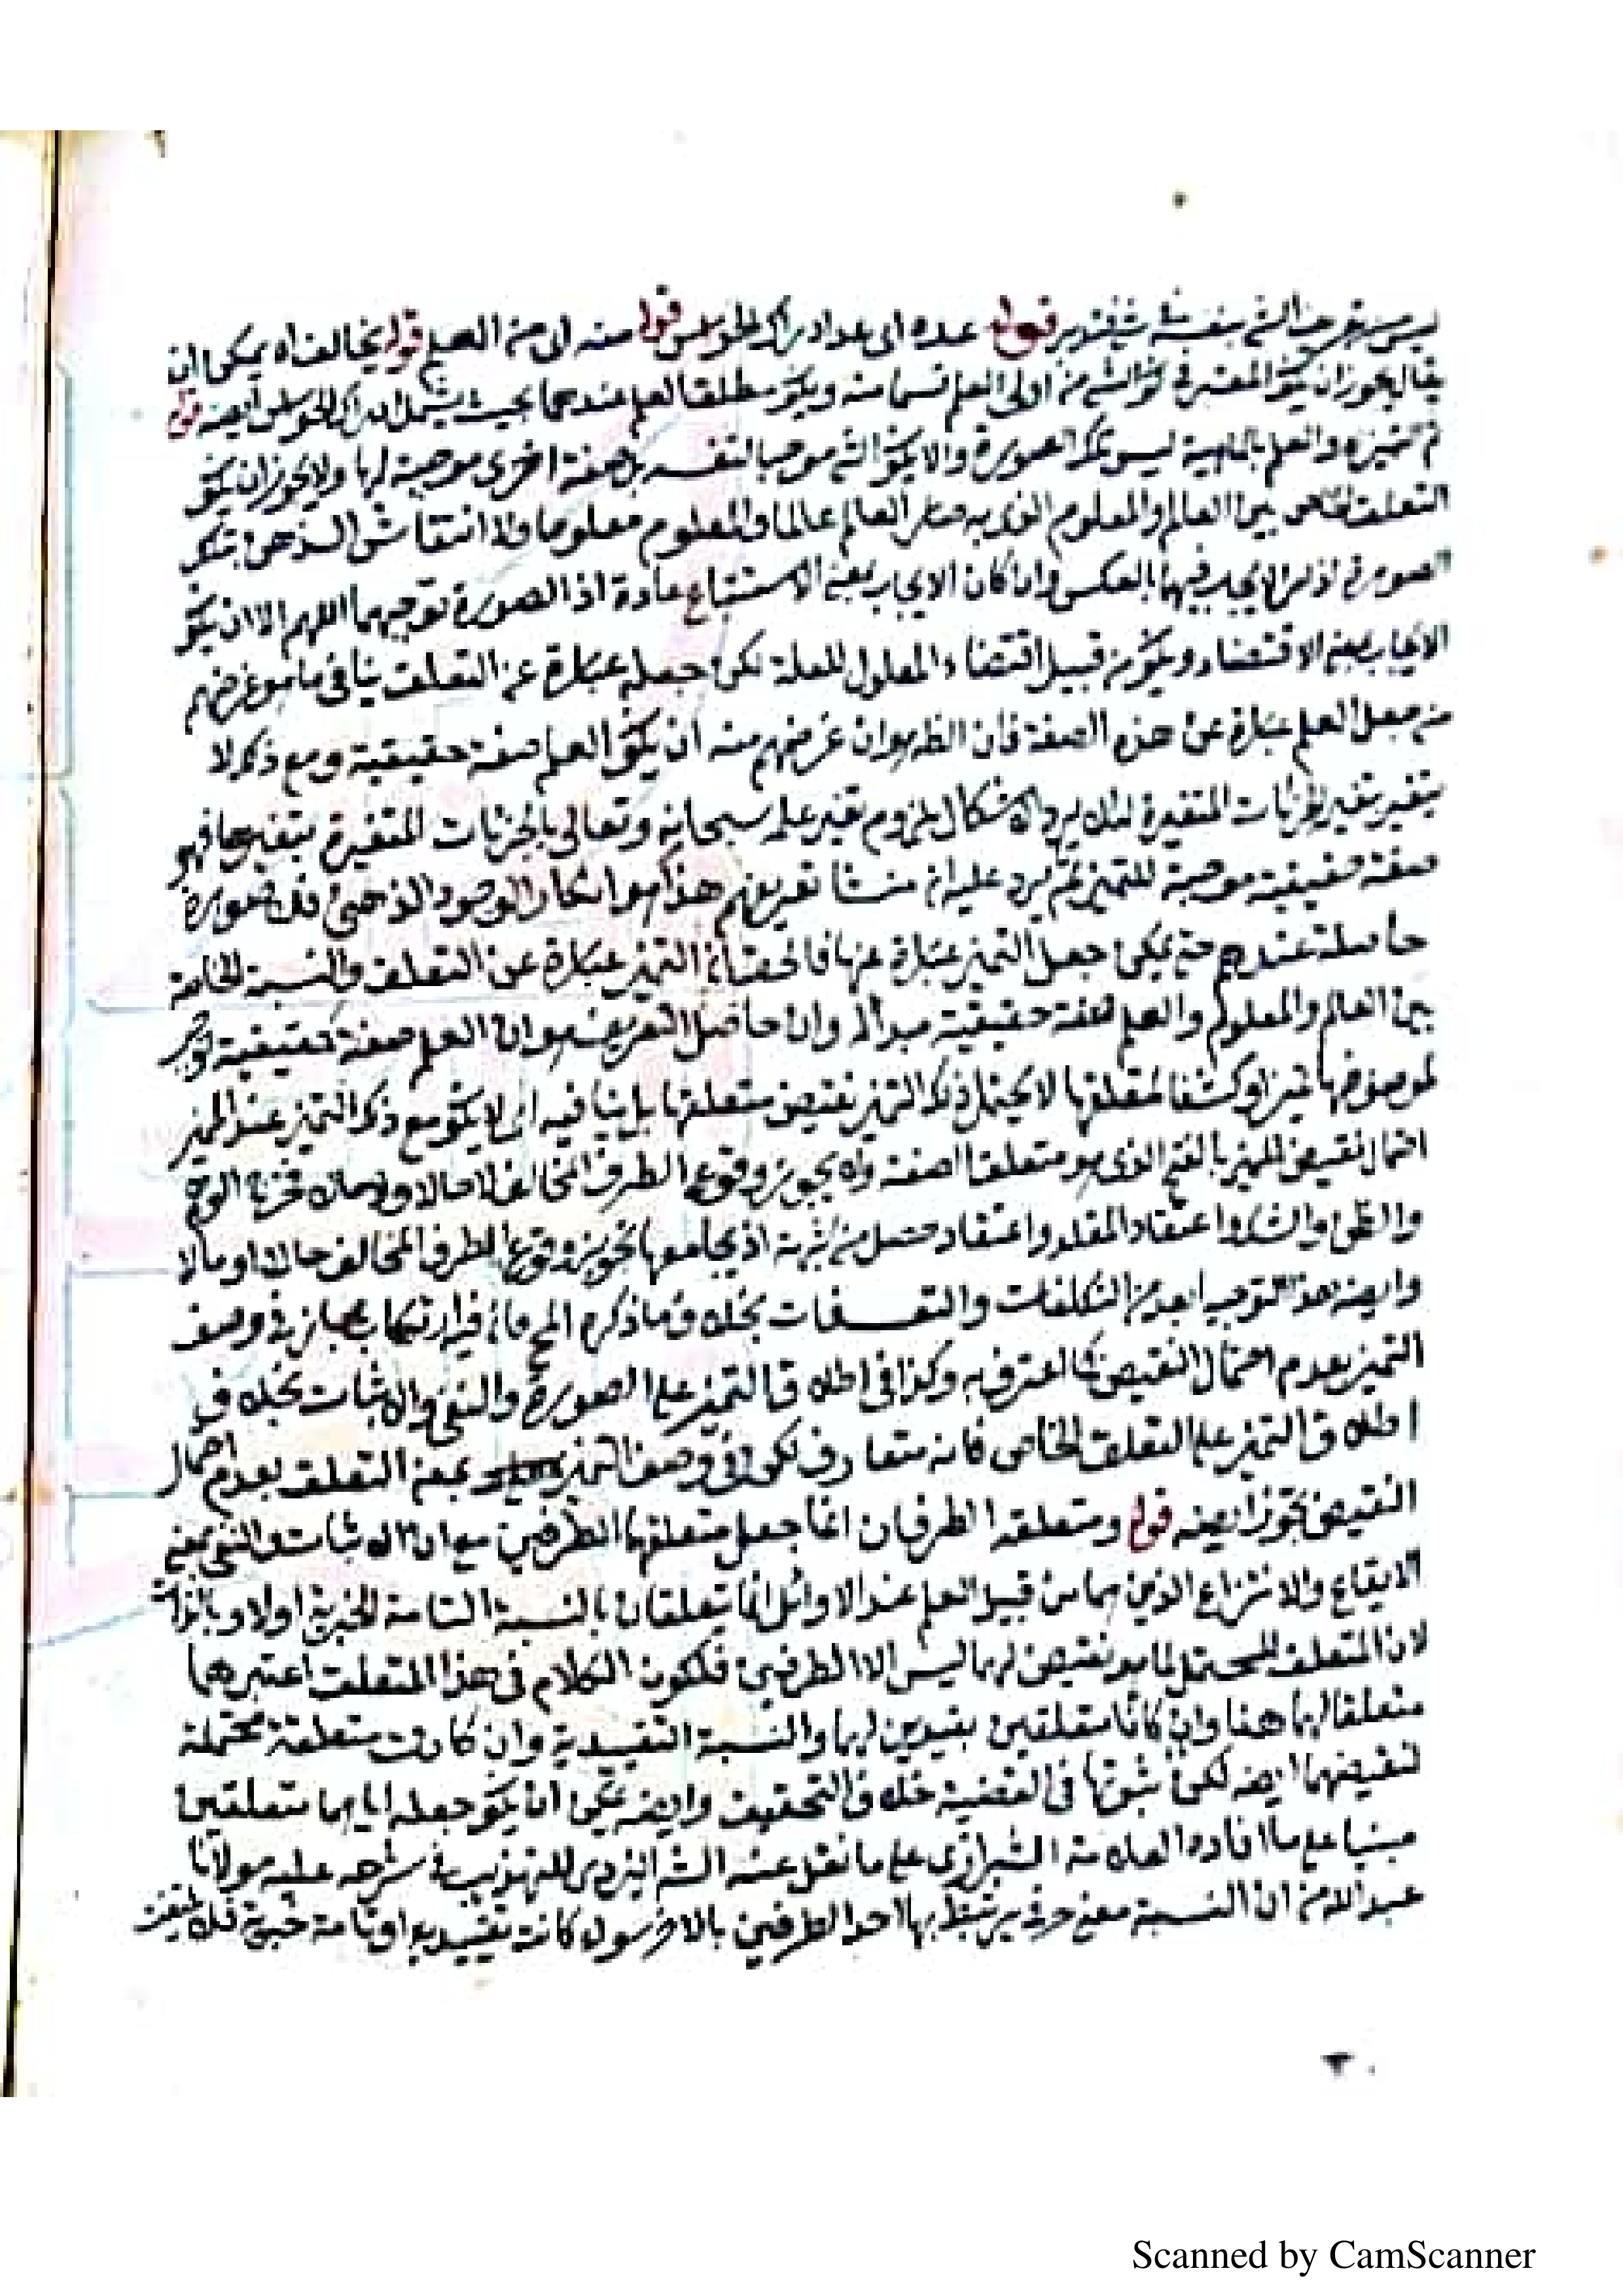 ليس تعريف الشئ بنفسه قوله عده اى عد ادراك الحواس قوله منه اى من العلم قوله يخالفاه يمكن ان
يقال يجوز ان يكو المعتبر فى من اولى العلم قسما منه ويكو مطلق العلم عندهما بحيث يشمل ادراك الحواس ايضه قوله
ثم التميز والعلم بالماهية ليس تلك الصورة والا يكو الشئ موجبا لنفسه بل صفة اخرى موجبة لها ولا يجوز ان يكو
التعلق الخاص بين العالم والمعلوم الذى به صار العالم عالما والمعلوم معلوما ولا انتقاش الذهن بتلك
الصورة اذ بالعكس وان كان الايجاب بمعنى الاستتباع عادة اذ الصورة توجبهما اللهم الا ان يكو
الايجاب بمعنى الاقتضاء ويكو من قبيل اقتضاء المعلول للعلة لكن جعله عبارة عن التعلق ينافى ما هو غرضهم
من جعل العلم عبارة عن هذه الصفة فان الظ هو ان غرضهم منه ان يكو العلم صفة حقيقية ومع ذلك لا
يتغير بتغير الجزئيات المتغيرة لئلا يرد الاشكال بلزوم تغير علمه سبحانه وتعالى بالجزئيات المتغيرة بتغيرها فهو
صفة حقيقية موجبة للتميز ثم يرد عليه ان منشأ تعريفهم هذا هو انكار الوجود الذهنى فلا صورة
حاصلة عندهم حتى يمكن جعل التميز عبارة عنها فالحق ان التميز عبارة عن التعلق والنسبة الخاصة
بين العالم والمعلوم والعلم صفة حقيقية مبدأ له وان حاصل التعريف هو ان العلم صفة حقيقية توجب
لموصوفها تميزا وكشفا لمتعلقها لا يحتمل ذلك التميز نقيض متعلقها بل ينافيه اى لا يكو مع ذلك التميز عند المميز
احتمال نقيض المميز بالفتح الذى هو متعلق الصفة ولا يجوز وقوع الطرف المخالف لا حالا ولا مالا فخرج الوهم
والظن والشك واعتقاد المقلد واعتقاد حصل من شبهة اذ يجامعها تجويز وقوع الطرف المخالف حالا او مالا
وايضه هذا التوجيه ابعد من التكلفات والتعسفات بخلاف ما ذكره المح فان فيه ارتكاب مجاز فى وصف
التميز بعدم احتمال النقيض كما اعترف به وكذا فى اطلاق التميز على الصورة والنفى والاثبات بخلاف
اطلاق التميز على التعلق الخاص فانه متعارف لكن فى وصف التميز بمعنى التعلق بعدم احتمال
النقيض تجوز ايضه قوله ومتعلقه الطرفان انما جعل متعلقهما الطرفين مع ان الاثبات والنفى بمعنى
الايقاع والانتزاع الذين هما من قبيل العلم عند الاوائل انما يتعلقان بالنسبة التامة الخبرية اولا وبالذات
لان المتعلق المحتمل لما هو نقيض لهما ليس الا الطرفين فلكون الكلام فى هذا المتعلق اعتبرهما
متعلقا لهما ههنا وان كانا متعلقين بقيدين لهما والنسبة التقييدية وان كانت متعلقة محتملة
لنقيضهما ايضه لكن ثبوتها فى القضية خلاف التحقيق وايضه يمكن ان يكو جعله اياهما متعلقين
مبنيا على ما افاده العلامة الشيرازى على ما نقل عنه الش اليزدى للتهذيب فى شرحه عليه مولانا
عبد الله من ان النسبة معنى حرفى يرتبط بها احد الطرفين بالاخر سواء كانت تقييدية او تامة خبرية فلا يتصف
٣٠
Scanned by CamScanner